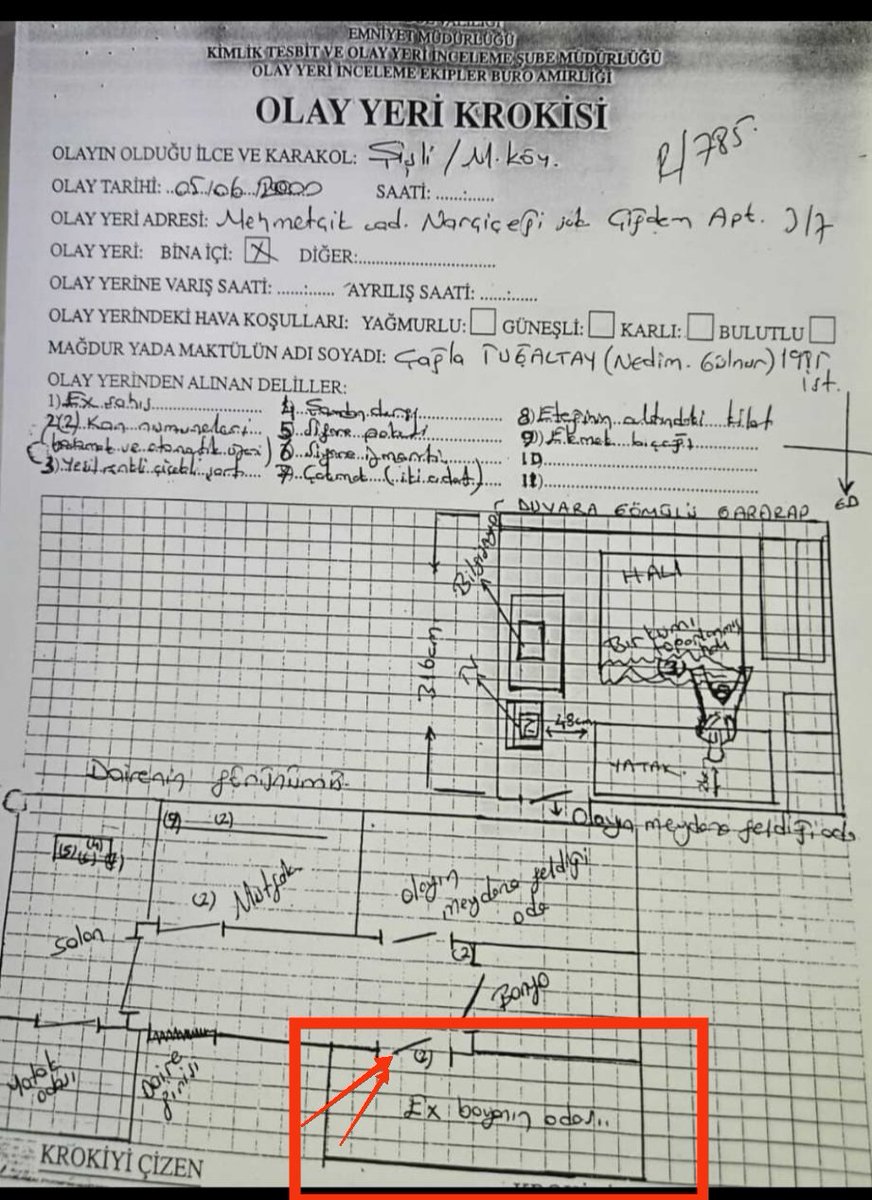 EMNİYET MÜDÜRLÜĞÜ
KİMLİK TESBİT VE OLAY YERİ İNCELEME ŞUBE MÜDÜRLÜĞÜ
OLAY YERİ İNCELEME EKİPLER BÜRO AMİRLİĞİ
OLAY YERİ KROKİSİ
OLAYIN OLDUĞU İLCE VE KARAKOL: Şişli / M.köy.
R/785.
OLAY TARİHİ: ..05./06../2000 SAATİ: .....:......
OLAY YERİ ADRESİ: Mehmetçik cad. Nargiçeği sok Çiğdem Apt. 7/7
OLAY YERİ: BİNA İÇİ: X DİĞER:..............................
OLAY YERİNE VARIŞ SAATİ: .....:...... AYRILIŞ SAATİ: .....:......
OLAY YERİNDEKİ HAVA KOŞULLARI: YAĞMURLU: GÜNEŞLİ: KARLI: BULUTLU
MAĞDUR YADA MAKTÜLÜN ADI SOYADI: Çağla TUĞALTAY (Nedim. Gülnur)
ist.
OLAY YERİNDEN ALINAN DELİLLER:
1) Ex şahıs
2) (2) Kan numuneleri
3) Yeşil renkli çiçekli şort
4
5 Sigara paketi
6 Sigara izmariti
7 Çakmak (iki adet)
8) Eteğinin altındaki kilot
9) Ekmek bıçağı
10
11)
DUVARA GÖMÜLÜ GARDRAP
Bilgisayar
HALI
Bir kısmı toparlanmış halı
(3)
316 cm
TV
48cm
YATAK
Dairenin görünümü
Olayın meydana geldiği oda
(9) (2)
(5) (6) (4) (7)
(2) Mutfak
olayın meydana geldiği oda
Salon
(2)
Banyo
Yatak odası
Daire girişi
(2)
Ex bayanın odası..
KROKİYİ ÇİZEN